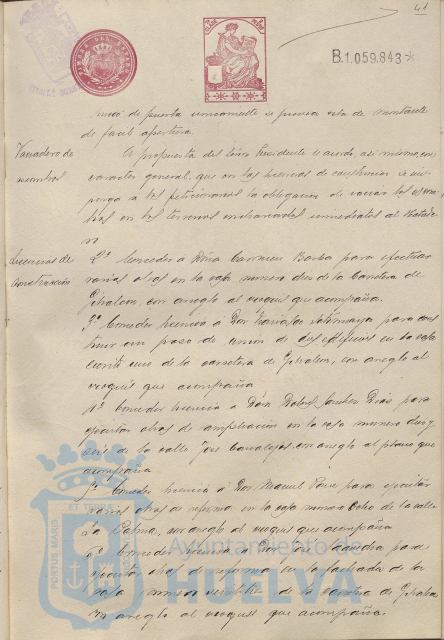 41
B.1.059.843*
de puerta unicamente se provea esta de montante
de facil apertura.
Vaciadero de
escombros
A propuesta del Señor Presidente se acordo asi mismo, con
caracter general, que en las licencias de construccion se im-
ponga a los peticionarios la obligacion de vaciar los escom-
bros en los terrenos inmediatos al
Licencias de
Construcción
2º Conceder a Doña Carmen Barba para efectuar
varias obras en la casa numero dos de la Carretera de
Gibraleon, con arreglo al croquis que acompaña.
3º Conceder licencia a Don para cons
truir un pozo de union de dos edificios en la calle
uno de la carretera de Gibraleon, con arreglo al
croquis que acompaña
4º Conceder licencia a Don Rafael Sanchez Diaz para
ejecutar obras de ampliacion en la casa numero diez y
seis de la calle Jose Canalejas con arreglo al plano que
acompaña
5º Conceder licencia a Don Manuel para ejecutar
varias obras de reforma en la casa numero Ocho de la calle
La Palma, con arreglo al croquis que acompaña
6º Conceder licencia a Don Jose para
ejecutar obras de reforma en la fachada de la
casa numero de la carretera de Gibraleon
con arreglo al croquis que acompaña.
PORTUS MARIS ET TERRAE
Ayuntamiento de
HUELVA